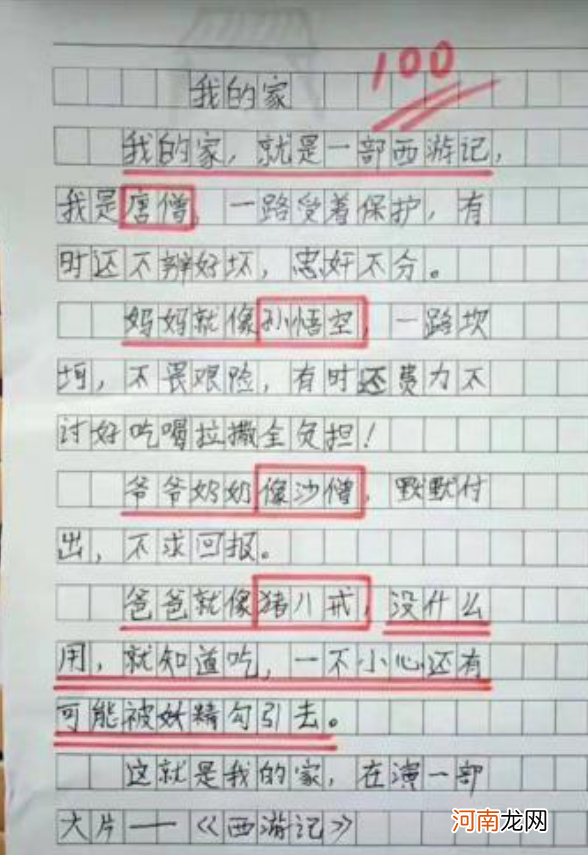 100
我的家
我的家，就是一部西游记，
我是唐僧，一路受着保护，有
时还不辨好坏，忠奸不分。
妈妈就像孙悟空，一路坎
坷，不畏艰险，有时还费力不
讨好吃喝拉撒全负担！
爷爷奶奶像沙僧，默默付
出，不求回报。
爸爸就像猪八戒，没什么
用，就知道吃，一不小心还有
可能被妖精勾引去。
这就是我的家，在演一部
大片——《西游记》
河南龙网